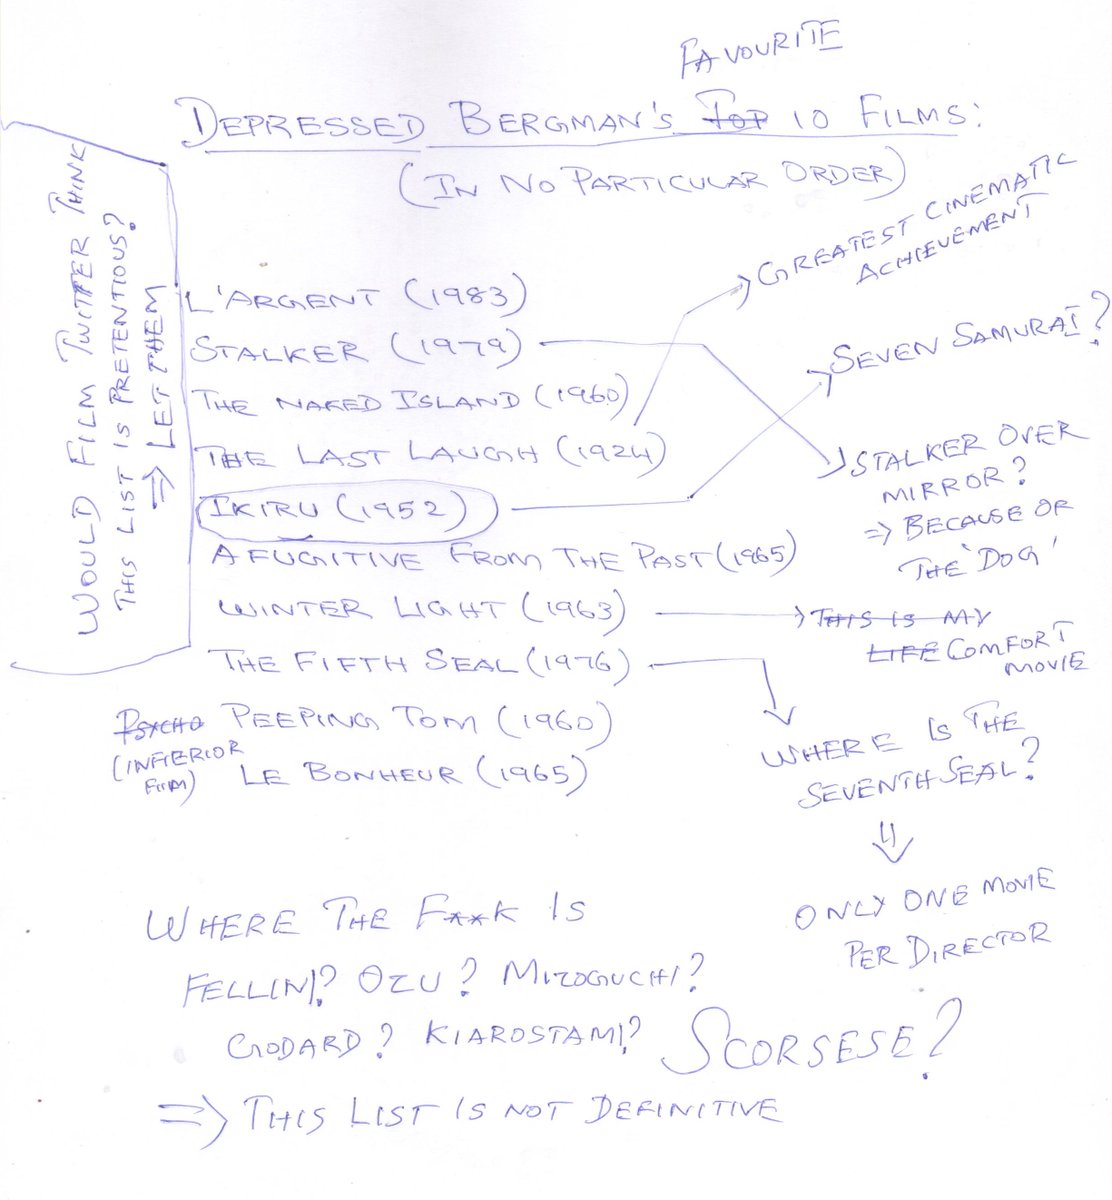 FAVOURITE
DEPRESSED BERGMAN'S TOP 10 FILMS:
(IN NO PARTICULAR ORDER)
WOULD FILM TWITTER THINK
THIS LIST IS PRETENTIOUS?
⇒ LET THEM
L'ARGENT (1983)
STALKER (1979)
THE NAKED ISLAND (1960)
THE LAST LAUGH (1924)
IKIRU (1952)
A FUGITIVE FROM THE PAST (1965)
WINTER LIGHT (1963)
THE FIFTH SEAL (1976)
PSYCHO PEEPING TOM (1960)
(INFERIOR
FILM) LE BONHEUR (1965)
GREATEST CINEMATIC
ACHIEVEMENT
SEVEN SAMURAI?
STALKER OVER
MIRROR?
⇒ BECAUSE OF
THE 'DOG'
THIS IS MY
LIFE COMFORT
MOVIE
WHERE IS THE
SEVENTH SEAL?
ONLY ONE MOVIE
PER DIRECTOR
WHERE THE F**K IS
FELLINI? OZU? MIZOGUCHI?
GODARD? KIAROSTAMI? SCORSESE?
⇒ THIS LIST IS NOT DEFINITIVE